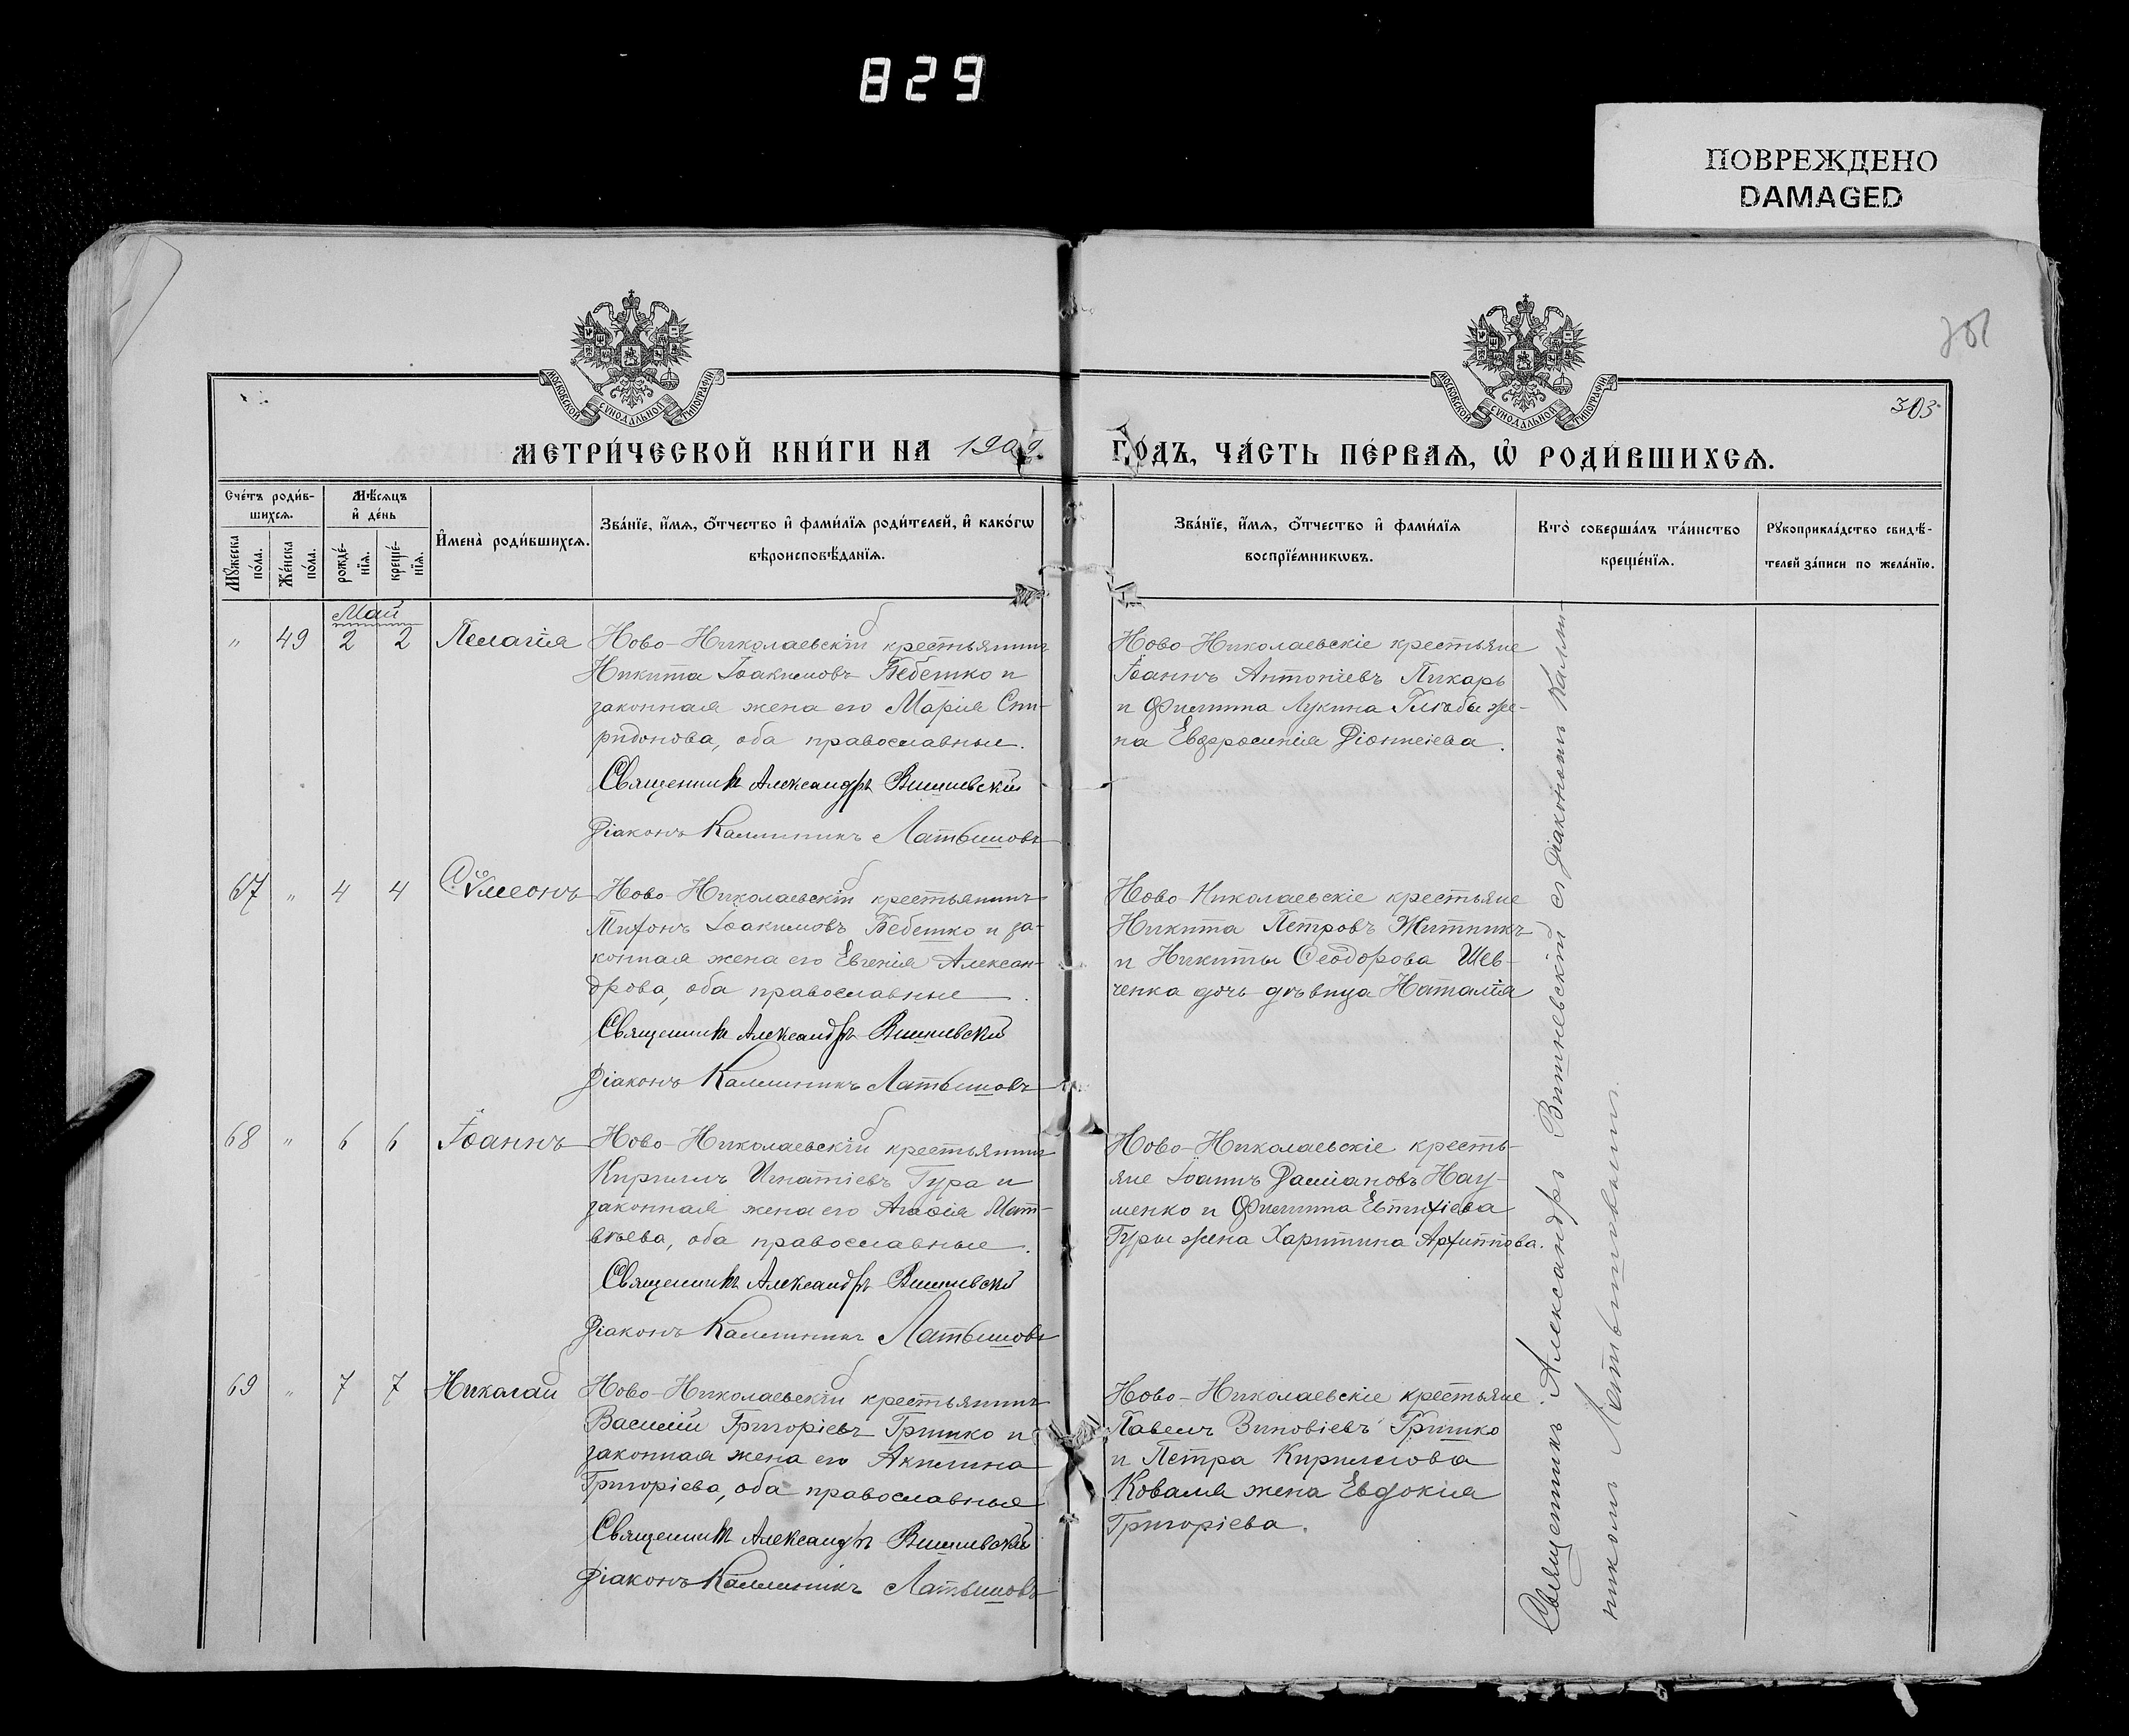 829
ПОВРЕЖДЕНО
DAMAGED
303
МОСКОВСКОЙ СѴНОДАЛЬНОЙ ТИПОГРАФІИ
МОСКОВСКОЙ СѴНОДАЛЬНОЙ ТИПОГРАФІИ
МЕТРИ́ЧЕСКОЙ КНИ́ГИ НА 1909.
ГО́ДЪ, ЧА́СТЬ ПЕ́РВАѦ, Ѡ҆ РОДИ́ВШИХСѦ.
Сче́тъ роди́в-
шихсѧ.
Мꙋжеска по́ла.
Же́нска по́ла.
Мѣ́сѧцъ
и҆ де́нь
рожде́-
нїѧ.
креще́-
нїѧ.
И҆мена̀ роди́вшихсѧ.
Зва́нїе, и҆́мѧ, ѻ҆́тчество и҆ фами́лїѧ роди́телей, и҆ како́гѡ
вѣроисповѣ́данїѧ.
Зва́нїе, и҆́мѧ, ѻ҆́тчество и҆ фами́лїѧ
воспрїе́мникѡвъ.
Кто̀ соверша́лъ та́инство
креще́нїѧ.
Рꙋкоприкла́дство свидѣ́-
телей за́писи по жела́нїю.
Май
" 49 2 2 Пелагія
Ново-Николаевскій крестьянинъ
Никита Іоакимовъ Бебешко и
законная жена его Марія Спи-
ридонова, оба православные.
Священникъ Александръ Вишневскій
Діаконъ Каллиникъ Латышовъ
Ново-Николаевскіе крестьяне
Іоаннъ Антоніевъ Пикарь
и Филиппа Лукина Глюбы же-
на Евфросинія Діонисіева.
67 " 4 4 Сѵмеонъ
Ново-Николаевскій крестьянинъ
Тихонъ Іоакимовъ Бебешко и за-
конная жена его Евгенія Алексан-
дрова, оба православные.
Священникъ Александръ Вишневскій
Діаконъ Каллиникъ Латышовъ
Ново-Николаевскіе крестьяне
Никита Петровъ Житникъ
и Никиты Ѳеодорова Шев-
ченка дочь дѣвица Наталія
68 " 6 6 Іоаннъ
Ново-Николаевскій крестьянинъ
Кириллъ Игнатіевъ Гура и
законная жена его Агаѳія Мат-
вѣева, оба православные.
Священникъ Александръ Вишневскій
Діаконъ Каллиникъ Латышовъ
Ново-Николаевскіе кресть-
яне Іоаннъ Даміановъ Нау-
менко и Филиппа Евтихіева
Гуры жена Харитина Архиппова.
69 " 7 7 Николай
Ново-Николаевскій крестьянинъ
Василій Григоріевъ Гришко и
законная жена его Акилина
Григоріева, оба православные
Священникъ Александръ Вишневскій
Діаконъ Каллиникъ Латышовъ
Ново-Николаевскіе крестьяне
Павелъ Зиновіевъ Гришко
и Петра Кириллова
Коваля жена Евдокія
Григоріева.
Священникъ Александръ Вишневскій съ діакономъ Калли-
никомъ Латышовымъ.